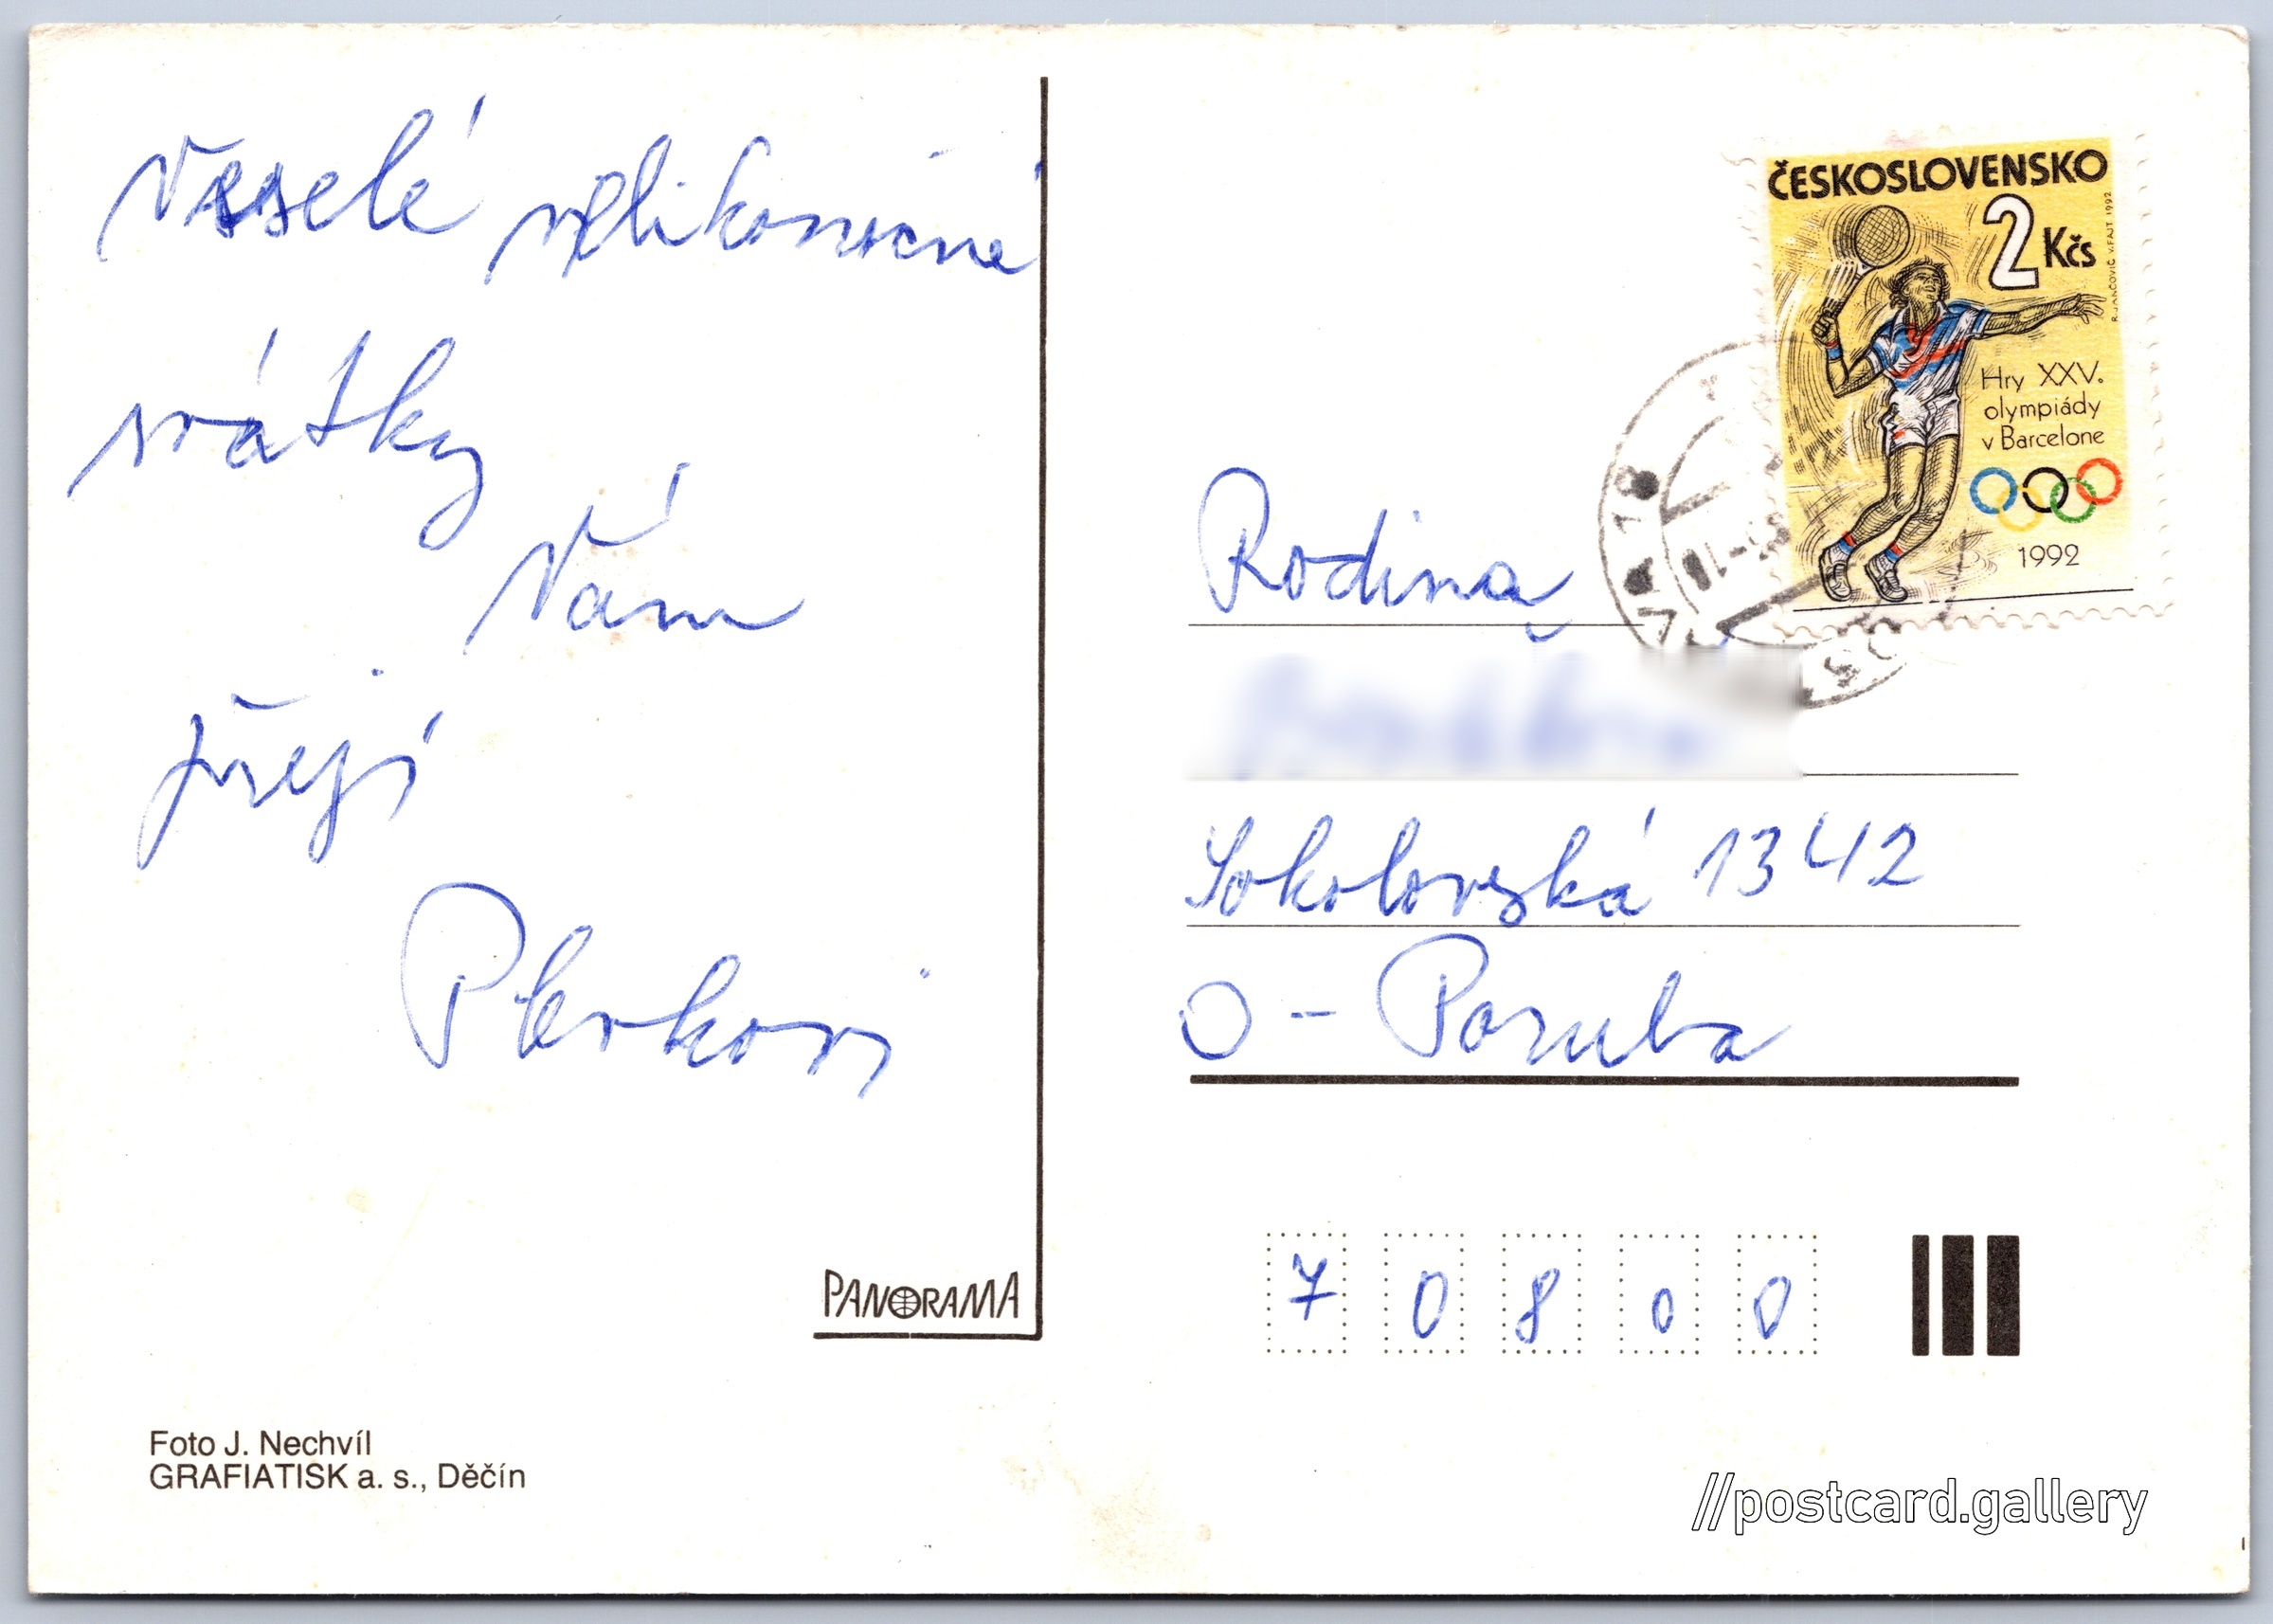 Veselé velikonoční
svátky
Vám
přejí
Plevkovi
PANORAMA
Foto J. Nechvíl
GRAFIATISK a. s., Děčín
ČESKOSLOVENSKO
2 Kčs
Hry XXV.
olympiády
v Barcelone
1992
R. JANČOVIČ V. FAJT 1992
Rodina
Sokolovská 1342
O - Poruba
7 0 8 0 0
//postcard.gallery